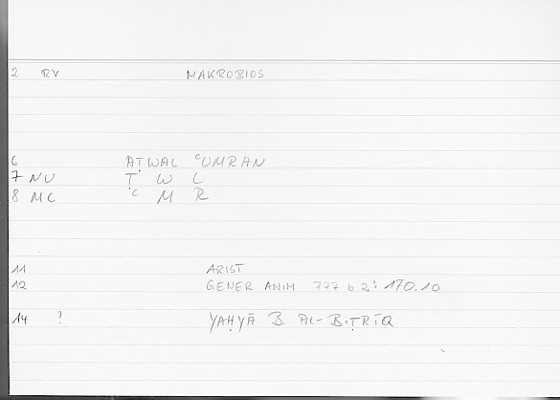 2 RV MAKROBIOS
6 AṬWAL ʿUMRAN
7 NU Ṭ W L
8 MC ʿ M R
11 ARIST
12 GENER ANIM 777 b 2: 170.10
14 ? YAḤYĀ B AL-BIṬRĪQ